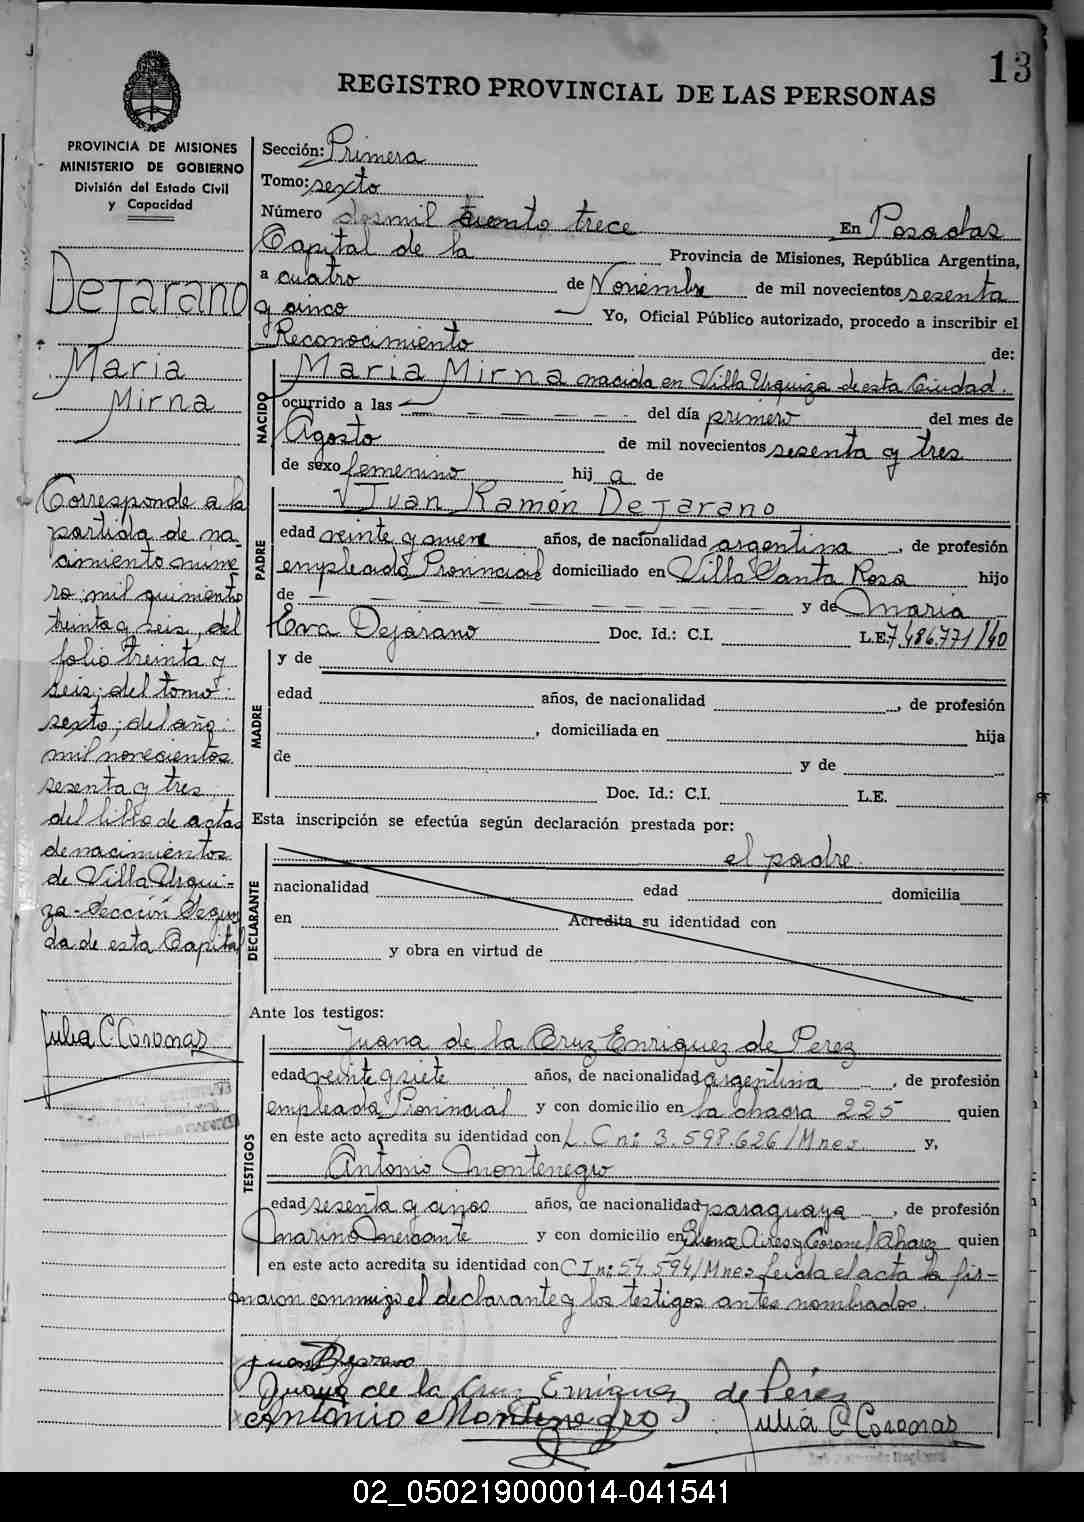 13
REGISTRO PROVINCIAL DE LAS PERSONAS
PROVINCIA DE MISIONES
MINISTERIO DE GOBIERNO
División del Estado Civil
y Capacidad
Dejarano
Maria
Mirna
Corresponde a la
partida de na-
cimiento núme
ro: mil quiniento
treinta y seis, del
folio treinta y
seis; del tomo:
sexto; del año:
mil novecientos
sesenta y tres,
del libro de actas
de nacimientos
de Villa Urqui-
za-Sección Segun
da de esta Capital
Julia C Coronas
Sección: Primera
Tomo: sexto
Número dosmil ciento trece En Posadas
Capital de la Provincia de Misiones, República Argentina,
a cuatro de Noviembre de mil novecientos sesenta
y cinco Yo, Oficial Público autorizado, procedo a inscribir el
Reconocimiento de:
NACIDO
Maria Mirna nacida en Villa Urquiza de esta Ciudad.
ocurrido a las — — — — — del día primero del mes de
Agosto de mil novecientos sesenta y tres
de sexo femenino hij a de
PADRE
Juan Ramón Dejarano
edad veinte y nueve años, de nacionalidad argentina, de profesión
empleado Provincial domiciliado en Villa Santa Rosa hijo
de — — — — — y de Maria
Eva Dejarano Doc. Id.: C.I. L.E. 7.486.771/40
MADRE
y de
edad años, de nacionalidad , de profesión
, domiciliada en hija
de y de
Doc. Id.: C.I. L.E.
Esta inscripción se efectúa según declaración prestada por:
el padre.
DECLARANTE
nacionalidad edad domicilia
en Acredita su identidad con
y obra en virtud de
Ante los testigos:
TESTIGOS
Juana de la Cruz Enriquez de Perez
edad veinte y siete años, de nacionalidad argentina, de profesión
empleada Provincial y con domicilio en la chacra 225 quien
en este acto acredita su identidad con L.C nº: 3.598.626/Mnes. y,
Antonio Montenegro
edad sesenta y cinco años, de nacionalidad paraguaya, de profesión
Marino Mercante y con domicilio en Buenos Aires y Coronel Alvarez quien
en este acto acredita su identidad con C I nº: 54.594/Mnes leida el acta la fir-
maron conmigo el declarante y los testigos antes nombrados.
Juana de la Cruz Enriquez de Pérez
Antonio Montenegro Julia C Coronas
02_050219000014-041541